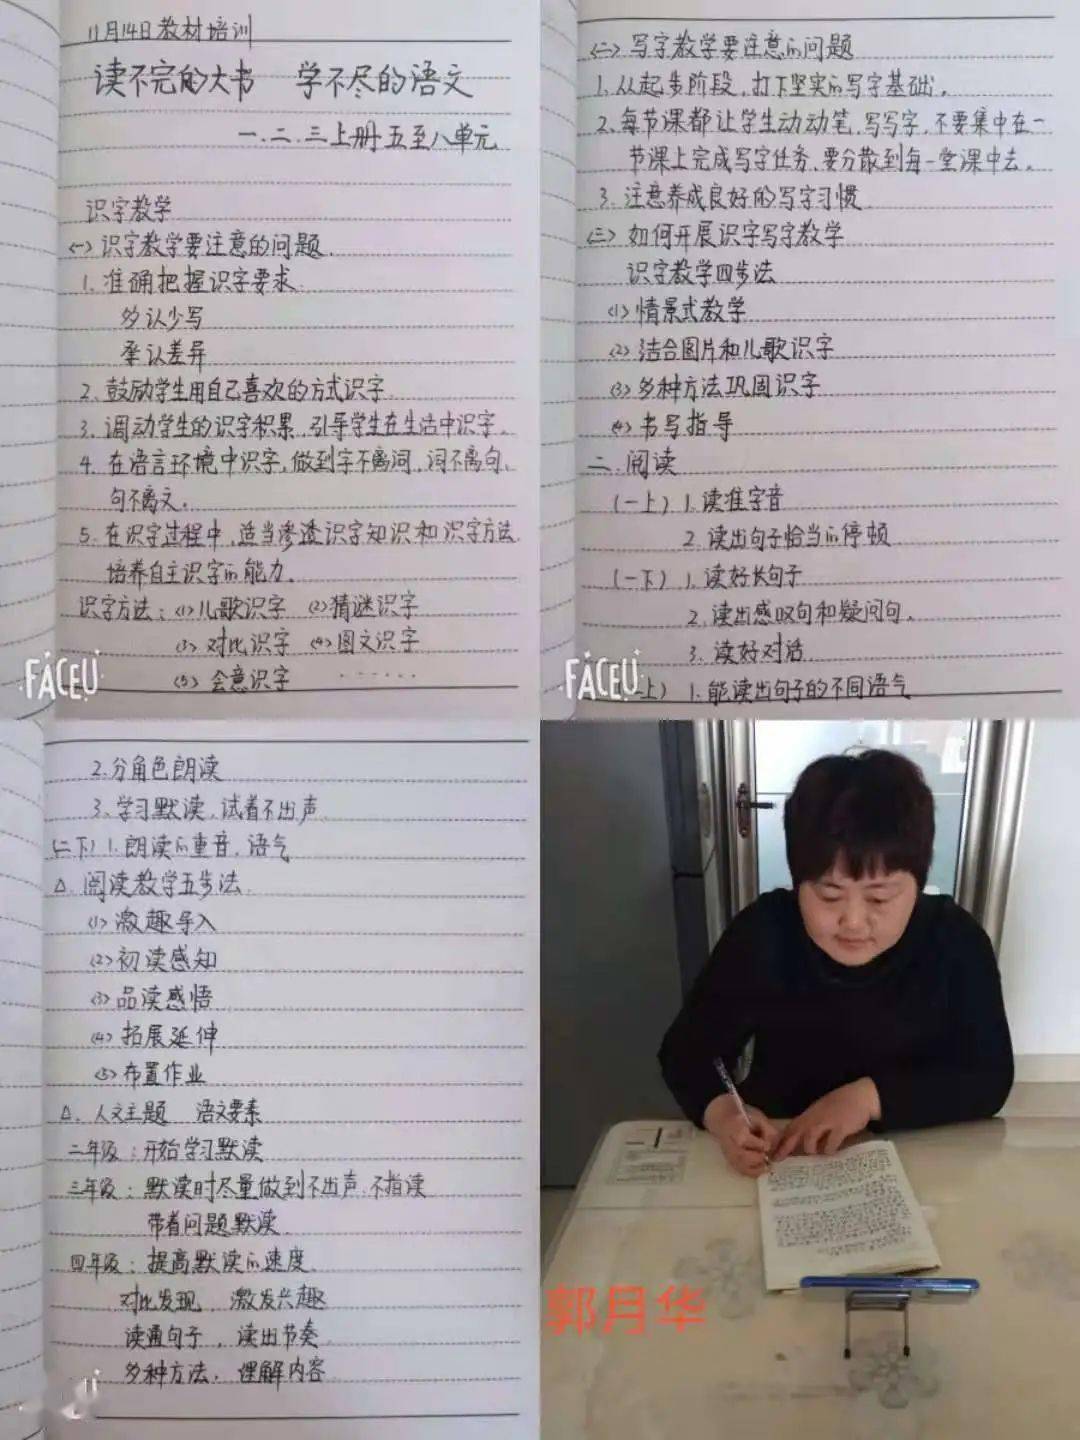 11月14日教材培训
读不完的大书 学不尽的语文
一.二.三上册五至八单元
识字教学
(一)识字教学要注意的问题.
1.准确把握识字要求.
多认少写
承认差异
2.鼓励学生用自己喜欢的方式识字.
3.调动学生的识字积累,引导学生在生活中识字。
4.在语言环境中识字,做到字不离词,词不离句、
句不离文。
5.在识字过程中,适当渗透识字知识和识字方法.
培养自主识字的能力。
识字方法:(1)儿歌识字 (2)猜谜识字
(3)对比识字 (4)图文识字
(5)会意识字 ······
FACEU
(二)写字教学要注意的问题
1.从起步阶段,打下坚实的写字基础。
2.每节课都让学生动动笔,写写字,不要集中在一
节课上完成写字任务.要分散到每一堂课中去。
3.注意养成良好的写字习惯
(三)如何开展识字写字教学
识字教学四步法
(1)情景式教学
(2)结合图片和儿歌识字
(3)多种方法巩固识字
(4)书写指导
二.阅读
(一上)1.读准字音
2.读出句子恰当的停顿
(一下)1.读好长句子
2.读出感叹句和疑问句。
3.读好对话
上)1.能读出句子的不同语气
FACEU
2.分角色朗读
3.学习默读,试着不出声
(二下)1.朗读的重音.语气
△.阅读教学五步法.
(1)激趣导入
(2)初读感知
(3)品读感悟
(4)拓展延伸
(5)布置作业
△.人文主题 语文要素
二年级:开始学习默读
三年级:默读时尽量做到不出声.不指读
带着问题默读.
四年级:提高默读的速度.
对比发现,激发兴趣
读通句子,读出节奏
多种方法,理解内容
郭月华